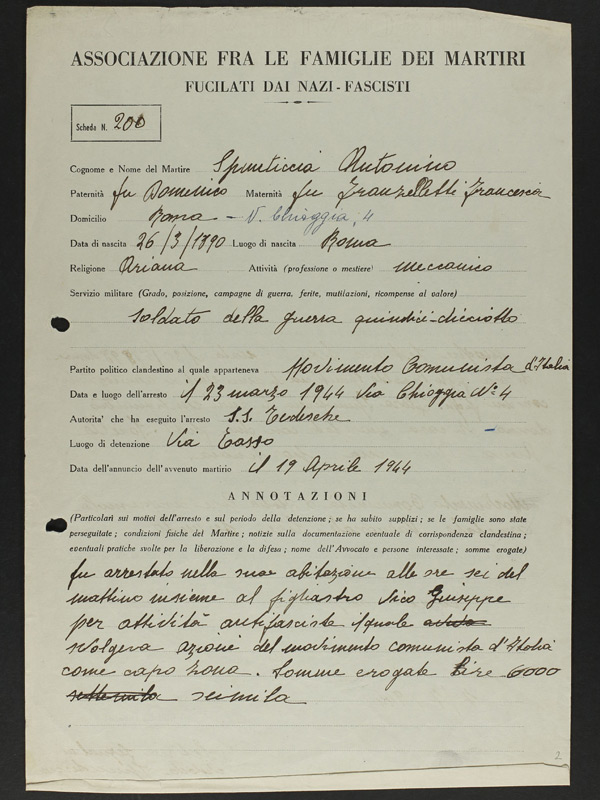 ASSOCIAZIONE FRA LE FAMIGLIE DEI MARTIRI
FUCILATI DAI NAZI-FASCISTI
Scheda N. 200
Cognome e Nome del Martire Spunticcia Antonino
Paternità fu Domenico Maternità fu Franzelletti Francesca
Domicilio Roma - V. Chioggia, 4
Data di nascita 26/3/1890 Luogo di nascita Roma
Religione Ariana Attività (professione o mestiere) meccanico
Servizio militare (Grado, posizione, campagne di guerra, ferite, mutilazioni, ricompense al valore)
Soldato della guerra quindici-diciotto
Partito politico clandestino al quale apparteneva Movimento Comunista d'Italia
Data e luogo dell'arresto il 23 marzo 1944 Via Chioggia No 4
Autorita' che ha eseguito l'arresto S.S. Tedesche
Luogo di detenzione Via Tasso
Data dell'annuncio dell'avvenuto martirio il 19 Aprile 1944
ANNOTAZIONI
(Particolari sui motivi dell'arresto e sul periodo della detenzione; se ha subito supplizi; se le famiglie sono state
perseguitate; condizioni fisiche del Martire; notizie sulla documentazione eventuale di corrispondenza clandestina;
eventuali pratiche svolte per la liberazione e la difesa; nome dell'Avvocato e persone interessate; somme erogate)
fu arrestato nella sua abitazione alle ore sei del
mattino insieme al figliastro Vico Giuseppe
per attività antifascista il quale
svolgeva azione del movimento comunista d'Italia
come capo zona. Somme erogate Lire 6000
settemila seimila
2